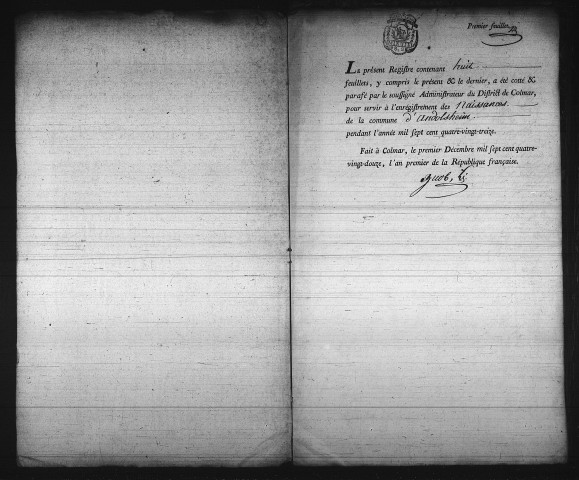 Premier feuillet
LE présent Registre contenant huit
feuillets, y compris le présent & le dernier, a été cotté &
parafé par le soussigné Administrateur du District de Colmar,
pour servir à l'enrégistrement des Naissances
de la commune d'andolsheim.
pendant l'année mil sept cent quatre-vingt-treize.
Fait à Colmar, le premier Décembre mil sept cent quatre-
vingt-douze, l'an premier de la République française.